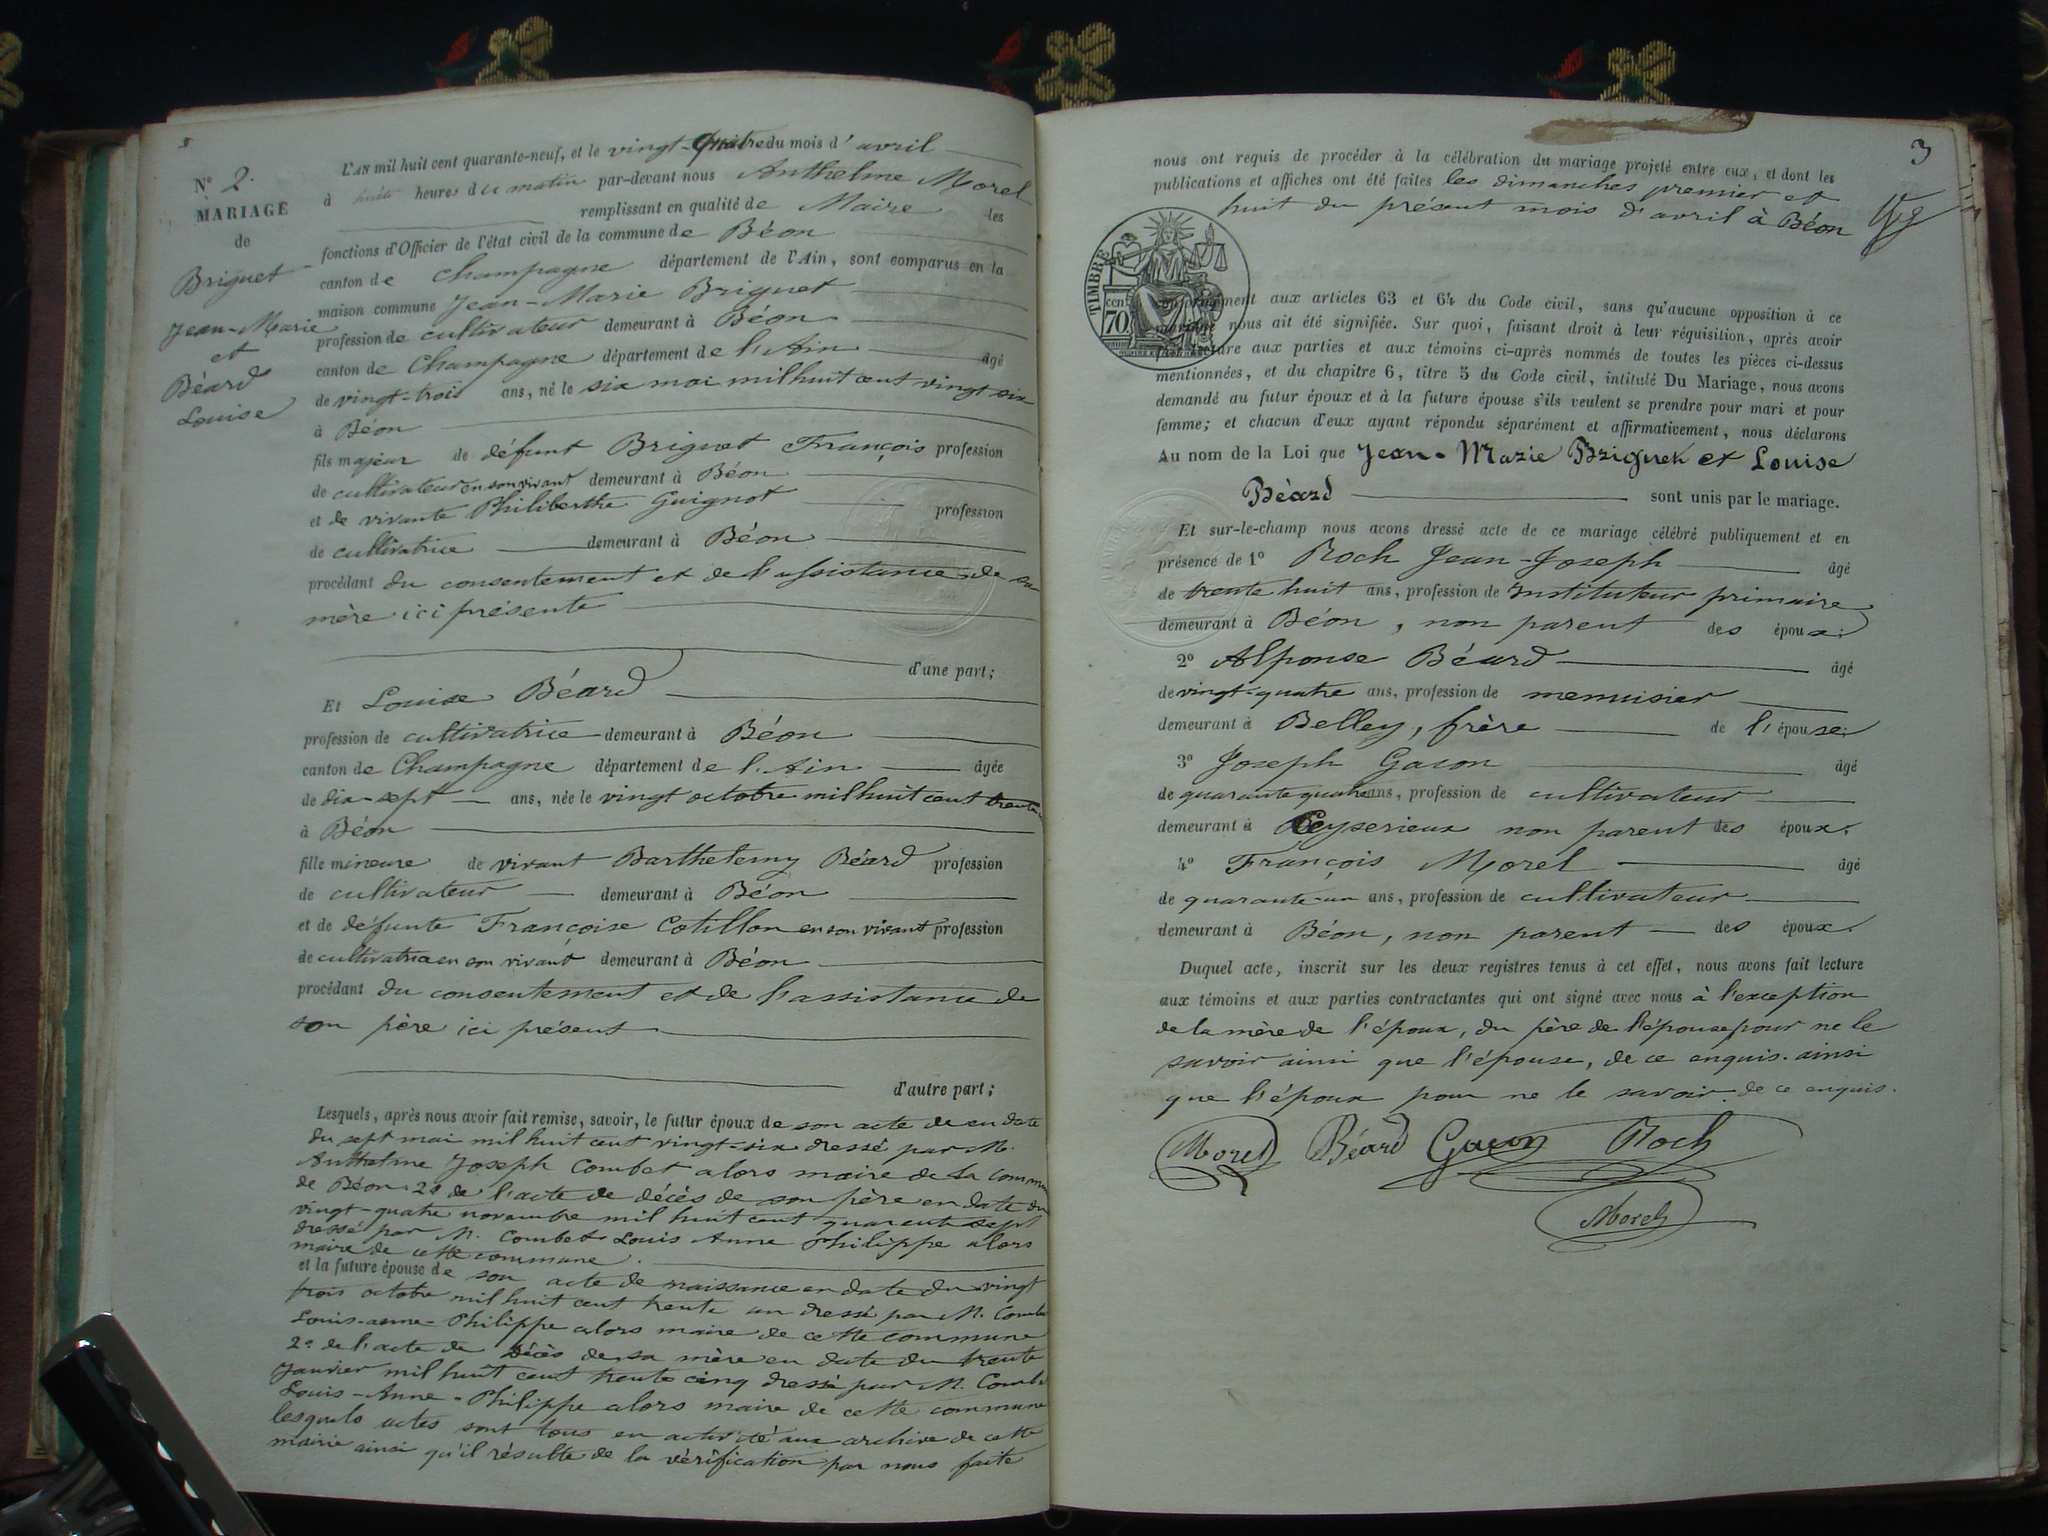 N° 2.
MARIAGE
de
Briguet
Jean-Marie
et
Béard
Louise
L'AN mil huit cent quarante-neuf, et le vingt-quatre du mois d'avril
à huit heures du matin par-devant nous Anthelme Morel
remplissant en qualité de Maire les
fonctions d'Officier de l'état civil de la commune de Béon
canton de Champagne département de l'Ain, sont comparus en la
maison commune Jean-Marie Briguet
profession de cultivateur demeurant à Béon
canton de Champagne département de l'Ain âgé
de vingt-trois ans, né le six mai mil huit cent vingt six
à Béon
fils majeur de défunt Briguet François profession
de cultivateur en son vivant demeurant à Béon
et de vivante Philiberthe Guignot profession
de cultivatrice demeurant à Béon
procédant du consentement et de l'assistance de sa
mère ici présente
d'une part;
Et Louise Béard
profession de cultivatrice demeurant à Béon
canton de Champagne département de l'Ain âgée
de dix-sept ans, née le vingt octobre mil huit cent trente
à Béon
fille mineure de vivant Barthelemy Béard profession
de cultivateur demeurant à Béon
et de défunte Françoise Cotillon en son vivant profession
de cultivatrice en son vivant demeurant à Béon
procédant du consentement et de l'assistance de
son père ici présent
d'autre part;
Lesquels, après nous avoir fait remise, savoir, le futur époux de son acte de en date
du sept mai mil huit cent vingt-six dressé par M.
Anthelme Joseph Combet alors maire de la commune
de Béon. 2° de l'acte de décès de son père en date du
vingt-quatre novembre mil huit cent quarante sept
dressé par M. Combet Louis Anne Philippe alors
maire de cette commune.
et la future épouse de son acte de naissance en date du vingt
trois octobre mil huit cent trente un dressé par M. Combet
Louis-anne-Philippe alors maire de cette commune
2° de l'acte de décès de sa mère en date du trente
Janvier mil huit cent trente cinq dressé par M. Combet
Louis-Anne-Philippe alors maire de cette commune
lesquels actes sont tous en activité aux archive de cette
mairie ainsi qu'il résulte de la vérification par nous faite
3
nous ont requis de procéder à la célébration du mariage projeté entre eux, et dont les
publications et affiches ont été faites les dimanches premier et
huit du présent mois d'avril à Béon
TIMBRE
70 CEN
conformément aux articles 63 et 64 du Code civil, sans qu'aucune opposition à ce
mariage nous ait été signifiée. Sur quoi, faisant droit à leur réquisition, après avoir
fait lecture aux parties et aux témoins ci-après nommés de toutes les pièces ci-dessus
mentionnées, et du chapitre 6, titre 5 du Code civil, intitulé Du Mariage, nous avons
demandé au futur époux et à la future épouse s'ils veulent se prendre pour mari et pour
femme; et chacun d'eux ayant répondu séparément et affirmativement, nous déclarons
Au nom de la Loi que Jean-Marie Briguet et Louise
Béard sont unis par le mariage.
Et sur-le-champ nous avons dressé acte de ce mariage célébré publiquement et en
présence de 1° Roch Jean-Joseph âgé
de trente huit ans, profession de Instituteur primaire
demeurant à Béon, non parent des époux.
2° Alponse Béard âgé
de vingt-quatre ans, profession de menuisier
demeurant à Belley, frère de l'épouse.
3° Joseph Gacon âgé
de quarante quatre ans, profession de cultivateur
demeurant à Ceyserieux non parent des époux.
4° François Morel âgé
de quarante-un ans, profession de cultivateur
demeurant à Béon, non parent des époux.
Duquel acte, inscrit sur les deux registres tenus à cet effet, nous avons fait lecture
aux témoins et aux parties contractantes qui ont signé avec nous à l'exception
de la mère de l'époux, du père de l'épouse pour ne le
savoir ainsi que l'épouse, de ce enquis. ainsi
que l'époux pour ne le savoir. de ce enquis.
Morel Béard Gacon Roch
Morel